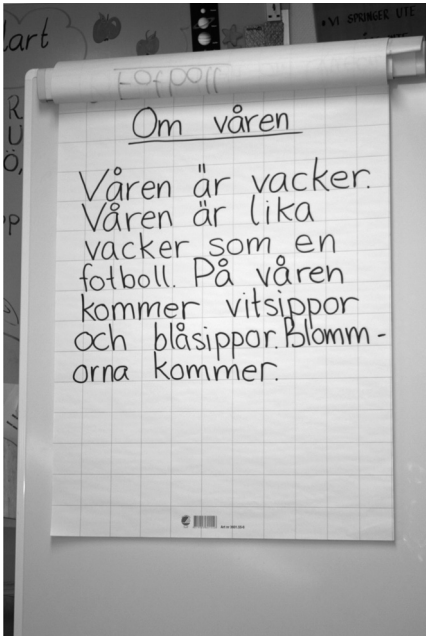 lart
• VI SPRINGER UTE
Fotboll
Om våren
Våren är vacker.
Våren är lika
vacker som en
fotboll. På våren
kommer vitsippor
och blåsippor. Blomm-
orna kommer.
R
U
Ö,